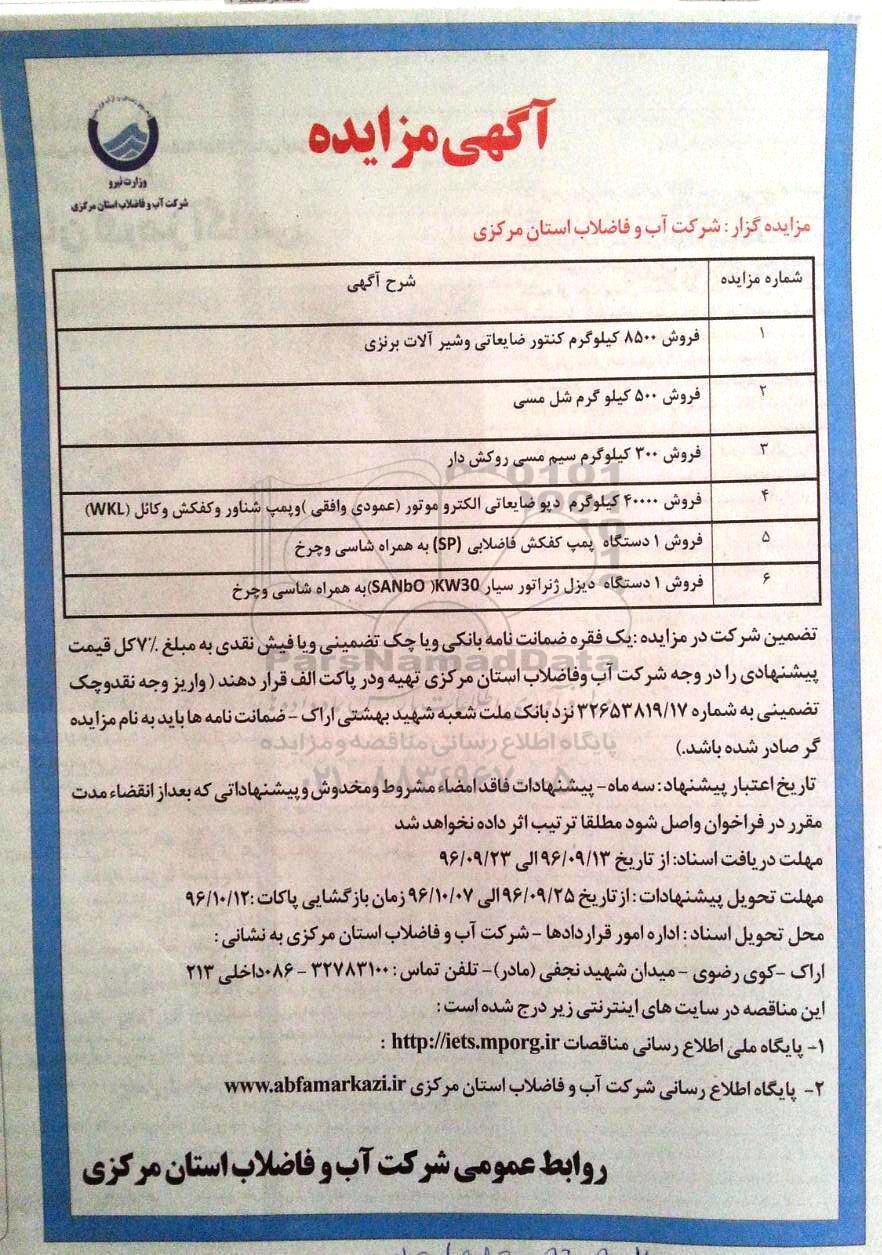 آگهی مزایده
وزارت نیرو
شرکت آب و فاضلاب استان مرکزی
مزایده گزار : شرکت آب و فاضلاب استان مرکزی
شماره مزایده شرح آگهی
۱ فروش ۸۵۰۰ کیلوگرم کنتور ضایعاتی وشیر آلات برنزی
۲ فروش ۵۰۰ کیلو گرم شل مسی
۳ فروش ۳۰۰ کیلوگرم سیم مسی روکش دار
۴ فروش ۴۰۰۰۰ کیلوگرم دپو ضایعاتی الکترو موتور (عمودی وافقی )وپمپ شناور وکفکش وکائل (WKL)
۵ فروش ۱ دستگاه پمپ کفکش فاضلابی (SP) به همراه شاسی وچرخ
۶ فروش ۱ دستگاه دیزل ژنراتور سیار SANbO )KW30)به همراه شاسی وچرخ
تضمین شرکت در مزایده :یک فقره ضمانت نامه بانکی ویا چک تضمینی ویا فیش نقدی به مبلغ ۷٪کل قیمت
پیشنهادی را در وجه شرکت آب وفاضلاب استان مرکزی تهیه ودر پاکت الف قرار دهند ( واریز وجه نقدوچک
تضمینی به شماره ۳۲۶۵۳۸۱۹/۱۷ نزد بانک ملت شعبه شهید بهشتی اراک - ضمانت نامه ها باید به نام مزایده
گر صادر شده باشد.)
تاریخ اعتبار پیشنهاد : سه ماه- پیشنهادات فاقد امضاء مشروط ومخدوش وپیشنهاداتی که بعداز انقضاء مدت
مقرر در فراخوان واصل شود مطلقا ترتیب اثر داده نخواهد شد
مهلت دریافت اسناد: از تاریخ ۹۶/۰۹/۱۳ الی ۹۶/۰۹/۲۳
مهلت تحویل پیشنهادات : ازتاریخ ۹۶/۰۹/۲۵ الی ۹۶/۱۰/۰۷ زمان بازگشایی پاکات :۹۶/۱۰/۱۲
محل تحویل اسناد : اداره امور قراردادها - شرکت آب و فاضلاب استان مرکزی به نشانی :
اراک -کوی رضوی - میدان شهید نجفی (مادر)- تلفن تماس : ۳۲۷۸۳۱۰۰ - ۰۸۶داخلی ۲۱۳
این مناقصه در سایت های اینترنتی زیر درج شده است :
۱- پایگاه ملی اطلاع رسانی مناقصات http://iets.mporg.ir :
۲- پایگاه اطلاع رسانی شرکت آب و فاضلاب استان مرکزی www.abfamarkazi.ir
روابط عمومی شرکت آب و فاضلاب استان مرکزی
ParsNamadData
پایگاه اطلاع رسانی مناقصه و مزایده